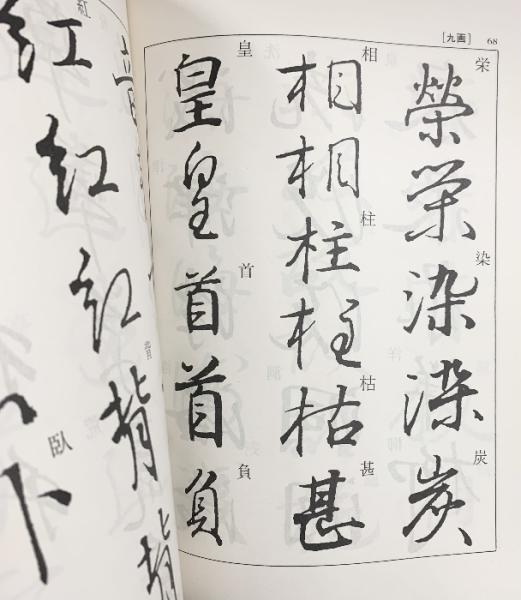 [九画] 68
栄
榮
栄
染
染
染
炭
炭
相
相
相
柱
柱
柱
枯
枯
甚
甚
皇
皇
皇
首
首
首
負
負
紅
紅
紅
紅
背
背
背
臥